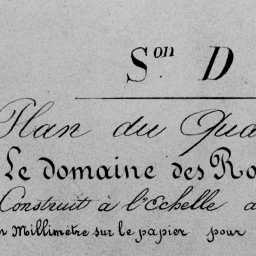 Son D
Plan du Qua
Le domaine des Ro
Construit à l'Echelle d
n Millimètre sur le papier pour